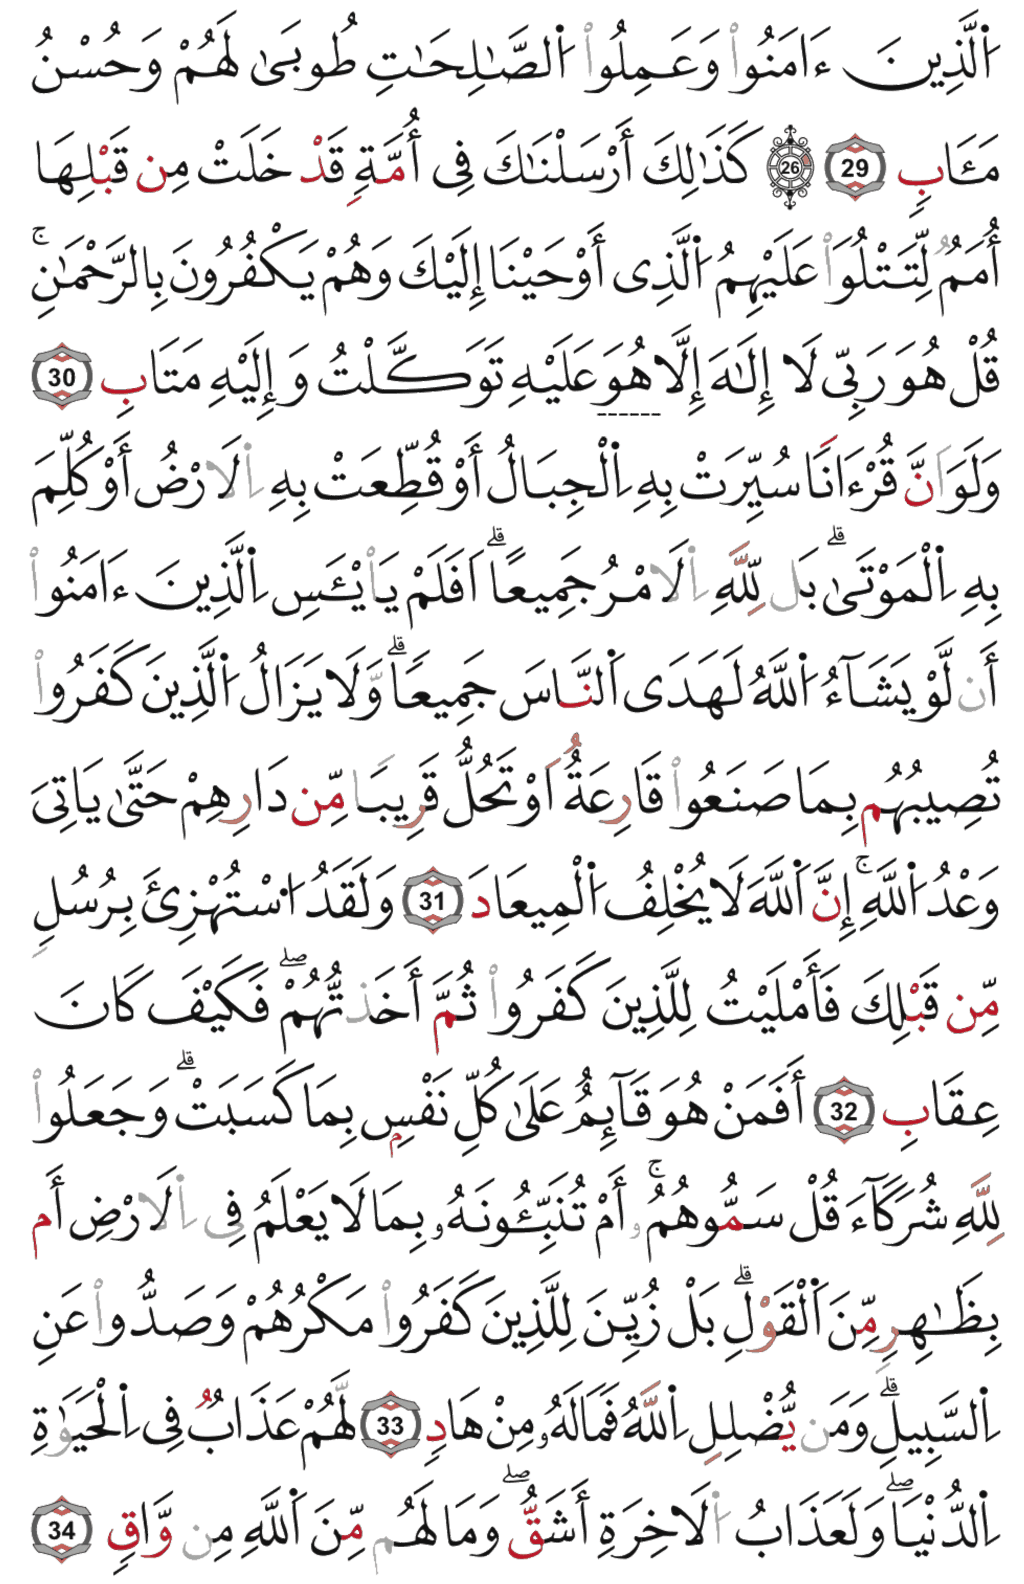 اَ۬لذِينَ ءَامَنُواْ وَعَمِلُواْ اُ۬لصَّٰلِحَٰتِ طُوبَىٰ لَهُمْ وَحُسْنُ
مَـَٔابٖ 29 26 كَذَٰلِكَ أَرْسَلْنَٰكَ فِى أُمَّةٖ قَدْ خَلَتْ مِن قَبْلِهَا
أُمَمٞ لِّتَتْلُوَاْ عَلَيْهِمُ اُ۬لذِى أَوْحَيْنَا إِلَيْكَ وَهُمْ يَكْفُرُونَ بِالرَّحْمَٰنِۚ
قُلْ هُوَ رَبِّى لَا إِلَٰهَ إِلَّا هُوَ عَلَيْهِ تَوَكَّلْتُ وَإِلَيْهِ مَتَابِ 30
وَلَوَ اَنَّ قُرْءَانٗا سُيِّرَتْ بِهِ اِ۬لْجِبَالُ أَوْ قُطِّعَتْ بِهِ اِ۬لَارْضُ أَوْ كُلِّمَ
بِهِ اِ۬لْمَوْتَىٰۗ بَل لِّلهِ اِ۬لَامْرُ جَمِيعاًۗ اَفَلَمْ يَاْيْـَٔسِ اِ۬لذِينَ ءَامَنُواْ
أَن لَّوْ يَشَآءُ اُ۬للَّهُ لَهَدَى اَ۬لنَّاسَ جَمِيعاٗۗ وَلَا يَزَالُ اُ۬لذِينَ كَفَرُواْ
تُصِيبُهُم بِمَا صَنَعُواْ قَارِعَةٌ اَوْ تَحُلُّ قَرِيباٗ مِّن دَارِهِمْ حَتَّىٰ يَاتِىَ
وَعْدُ اُ۬للَّهِۚ إِنَّ اَ۬للَّهَ لَا يُخْلِفُ اُ۬لْمِيعَادَ 31 وَلَقَدُ اُ۟سْتُهْزِئَ بِرُسُلٖ
مِّن قَبْلِكَ فَأَمْلَيْتُ لِلَّذِينَ كَفَرُواْ ثُمَّ أَخَذتُّهُمْۖ فَكَيْفَ كَانَ
عِقَابِ 32 أَفَمَنْ هُوَ قَآئِمٌ عَلَىٰ كُلِّ نَفْسِۭ بِمَا كَسَبَتْۗ وَجَعَلُواْ
لِلهِ شُرَكَآءَ قُلْ سَمُّوهُمُۥۚ أَمْ تُنَبِّـُٔونَهُۥ بِمَا لَا يَعْلَمُ فِى اِ۬لَارْضِ أَم
بِظَٰهِرٖ مِّنَ اَ۬لْقَوْلِۗ بَلْ زُيِّنَ لِلَّذِينَ كَفَرُواْ مَكْرُهُمْ وَصَدُّواْ عَنِ
اِ۬لسَّبِيلِۗ وَمَن يُّضْلِلِ اِ۬للَّهُ فَمَا لَهُۥ مِنْ هَادٖ 33 لَّهُمْ عَذَابٞ فِى اِ۬لْحَيَوٰةِ
اِ۬لدُّنْيَاۖ وَلَعَذَابُ اُ۬لَاخِرَةِ أَشَقُّۖ وَمَا لَهُم مِّنَ اَ۬للَّهِ مِن وَّاقٖ 34